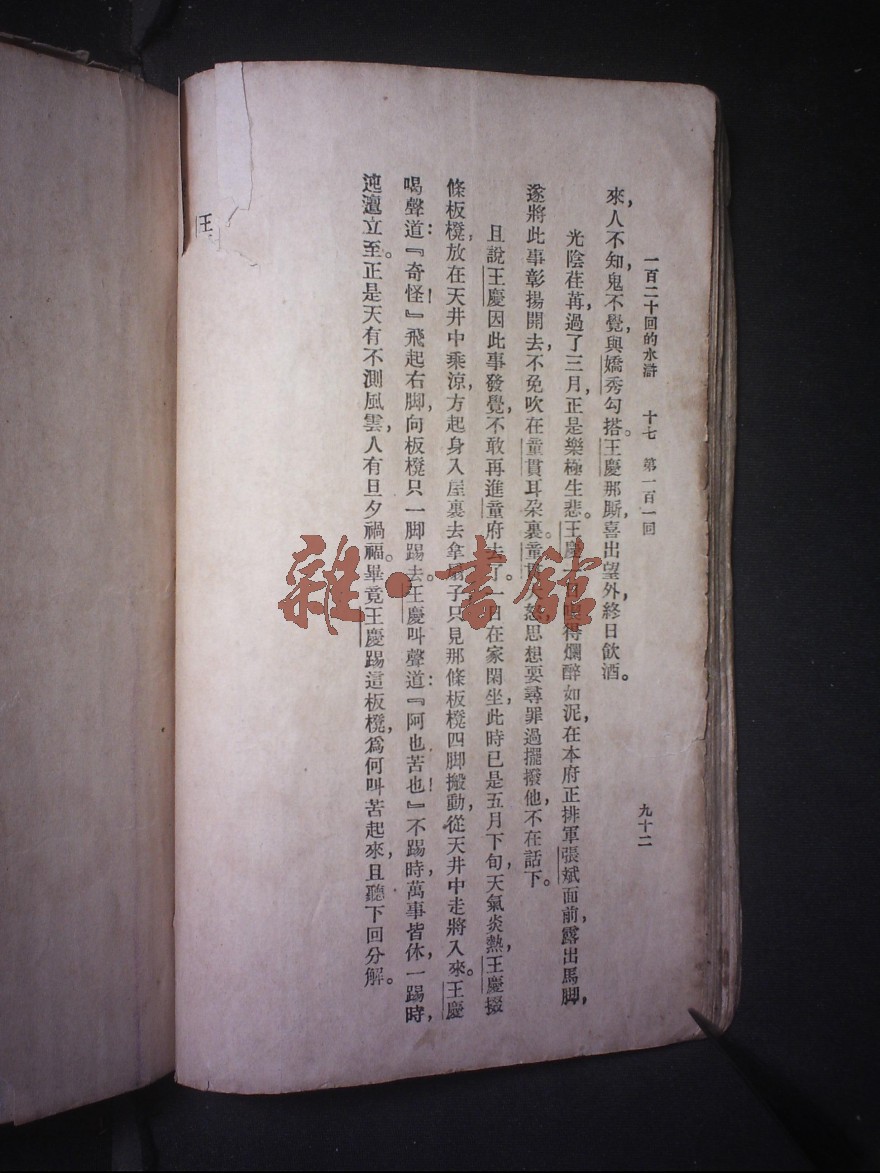 一百二十回的水滸　十七　第一百一回　九十二
來，人不知，鬼不覺，與嬌秀勾搭。王慶那厮喜出望外，終日飲酒。
光陰荏苒，過了三月，正是樂極生悲。王慶一日喫得爛醉如泥，在本府正排軍張斌面前，露出馬脚，
遂將此事彰揚開去，不免吹在童貫耳朶裏。童貫大怒，思想要尋罪過擺撥他，不在話下。
且說王慶因此事發覺，不敢再進童府去了。一日在家閑坐，此時已是五月下旬，天氣炎熱，王慶掇
條板櫈，放在天井中乘涼，方起身入屋裏去拿扇子，只見那條板櫈四脚搬動，從天井中走將入來。王慶
喝聲道：『奇怪！』飛起右脚，向板櫈只一脚踢去。王慶叫聲道：『阿也！苦也！』不踢時，萬事皆休，一踢時，
迍邅立至。正是天有不測風雲，人有旦夕禍福。畢竟王慶踢這板櫈，爲何叫苦起來，且聽下回分解。
王
雜·書館